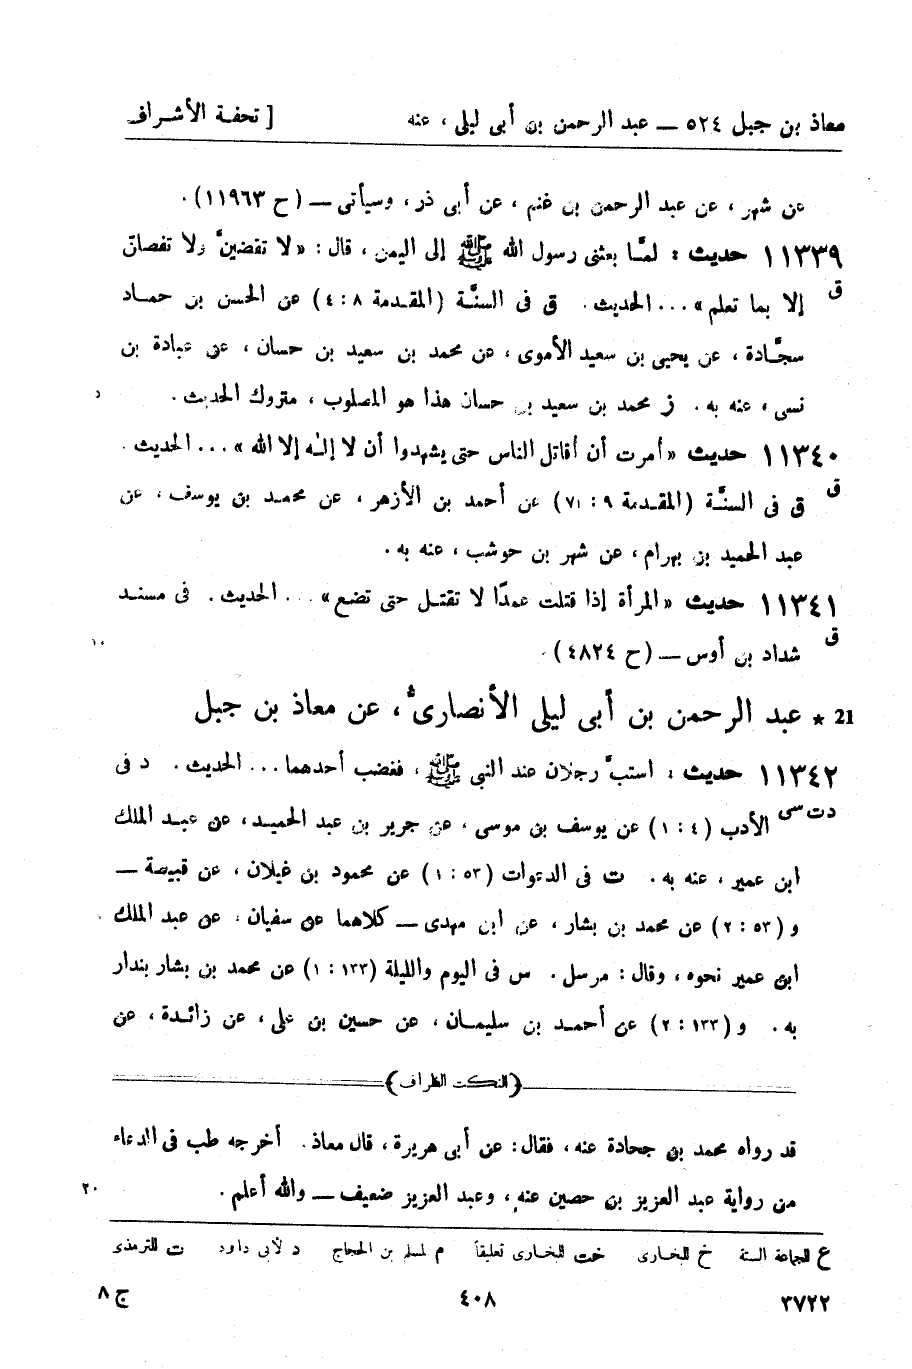 معاذ بن جبل ٥٢٤ — عبد الرحمن بن أبى ليلى ، عنه [ تحفة الأشراف
عن شهر ، عن عبد الرحمن بن غنم ، عن أبى ذر ، وسيأتى — (ح ١١٩٦٣) .
١١٣٣٩ حديث : لمَّا بعثنى رسول الله ﷺ إلى اليمن ، قال : «لا تقضينَّ ولا تفصلن
ق إلا بما تعلم» ... الحديث . ق فى السنَّة (المقدمة ٨ : ٤) عن الحسن بن حماد
سجَّادة ، عن يحيى بن سعيد الأموى ، عن محمد بن سعيد بن حسان ، عن عبادة بن
نسى ، عنه به . ز محمد بن سعيد بن حسان هذا هو المصلوب ، متروك الحديث .
١١٣٤٠ حديث «أمرت أن أقاتل الناس حتى يشهدوا أن لا إلٰه إلا الله» ... الحديث .
ق ق فى السنَّة (المقدمة ٩ : ٧١) عن أحمد بن الأزهر ، عن محمد بن يوسف ، عن
عبد الحميد بن بهرام ، عن شهر بن حوشب ، عنه به .
١١٣٤١ حديث «المرأة إذا قتلت عمدًا لا تقتل حتى تضع» ... الحديث . فى مسند
ق شداد بن أوس — (ح ٤٨٢٤) .
١٠
21 * عبد الرحمن بن أبى ليلى الأنصارى ، عن معاذ بن جبل
١١٣٤٢ حديث : استبَّ رجلان عند النبى ﷺ ، فغضب أحدهما ... الحديث . د فى
د ت سى الأدب (٤ : ١) عن يوسف بن موسى ، عن جرير بن عبد الحميد ، عن عبد الملك
ابن عمير ، عنه به . ت فى الدعوات (٥٣ : ١) عن محمود بن غيلان ، عن قبيصة —
و (٥٣ : ٢) عن محمد بن بشار ، عن ابن مهدى — كلاهما عن سفيان ، عن عبد الملك
ابن عمير نحوه ، وقال : مرسل . س فى اليوم والليلة (١٣٣ : ١) عن محمد بن بشار بندار
به . و (١٣٣ : ٢) عن أحمد بن سليمان ، عن حسين بن على ، عن زائدة ، عن
(النكت الظراف)
قد رواه محمد بن جحادة عنه ، فقال : عن أبى هريرة ، قال معاذ . أخرجه طب فى الدعاء
من رواية عبد العزيز بن حصين عنه ، وعبد العزيز ضعيف — والله أعلم .
٢٠
ع للجماعة الستة خ للبخارى خت للبخارى تعليقاً م لمسلم بن الحجاج د لأبى داود ت للترمذى
٣٧٢٢ ٤٠٨ ج ٨